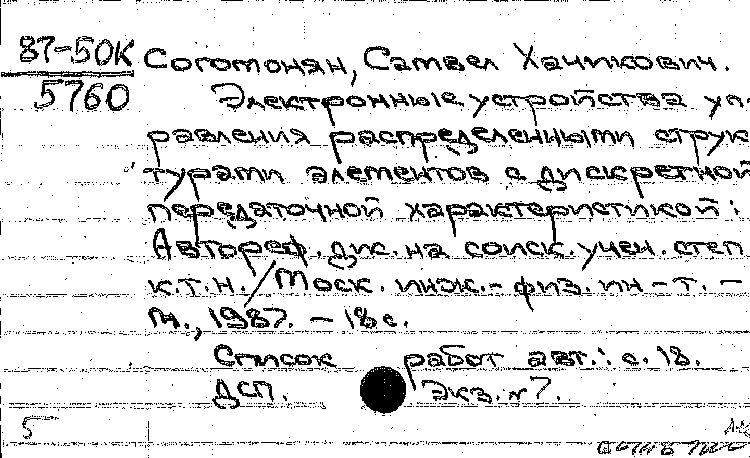 87-50К Согомонян, Самвел Хачикович.
5760 Электронные устройства уп-
равления распределенными струк
турами элементов с дискретной
передаточной характеристикой:
Автореф. дис. на соиск. учен. степ
к.т.н. / Моск. инж.-физ. ин-т. -
М., 1987. - 18 с.
Список работ авт.: с. 18.
ДСП. Экз. № 7.
5